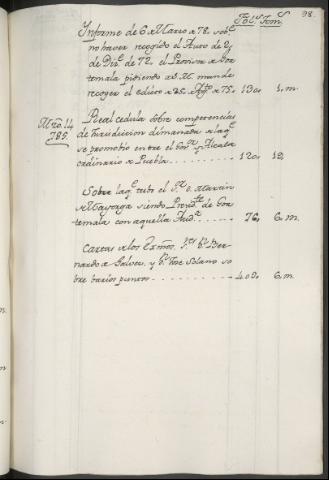 98.
Fol.s Tom.s
Informe de 6 Marzo a 78. sob.e
no haver recogido el Auto de 2
de Dic.e de 72. el Provisor de Goa-
temala pidiendo a S. M. mande
recoger el edicto a 25. Ag.to a 75. 130. 1. m.
Mzo. 14
785.
Real cedula sobre competencias
de Jurisdiccion dimanada a la q.e
se promobió entre el Gov.or y Alcalde
ordinario a Puebla. 120. 12,
Sobre la q.e tubo el S.r D. Martin
Mayorga siendo Presid.te de Goa-
temala con aquella Aud.a 76, 6. m.
Cartas a los Exmos. S.res D.n Ber-
nardo a Galvez, y D.n Jose Solano so
bre barios puntos 400. 6. m.